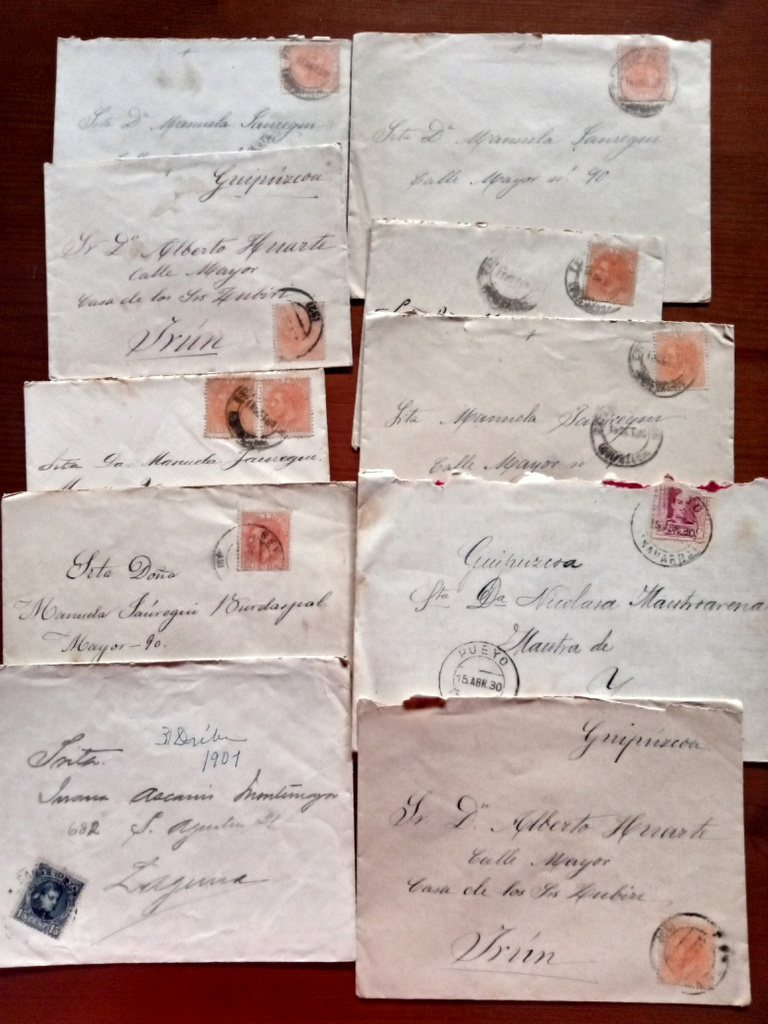 Srta Dª Manuela Jauregui
Srta Dª Manuela Jauregui
Calle Mayor nº 90
Guipúzcoa
Sr Dn Alberto Huarte
Calle Mayor
Casa de los Srs Zubiri
Irún
Srta Manuela Jauregui
Calle Mayor n
Srta Da. Manuela Jauregui.
Srta Doña
Manuela Jaúregui Burdaspal
Mayor-90.
Guipuzcoa
Sta Da Nicolasa Maistroarena
Maestra de
Y
PUEYO
15.ABR.30
NAVARRA
31 Dcbre
1901
Srita.
Juana Ascanio Montemayor
682 S. Agustin
Laguna
15 CENT 15
Guipúzcoa
Sr Dn Alberto Huarte
Calle Mayor
Casa de los Srs Zubiri
Irún